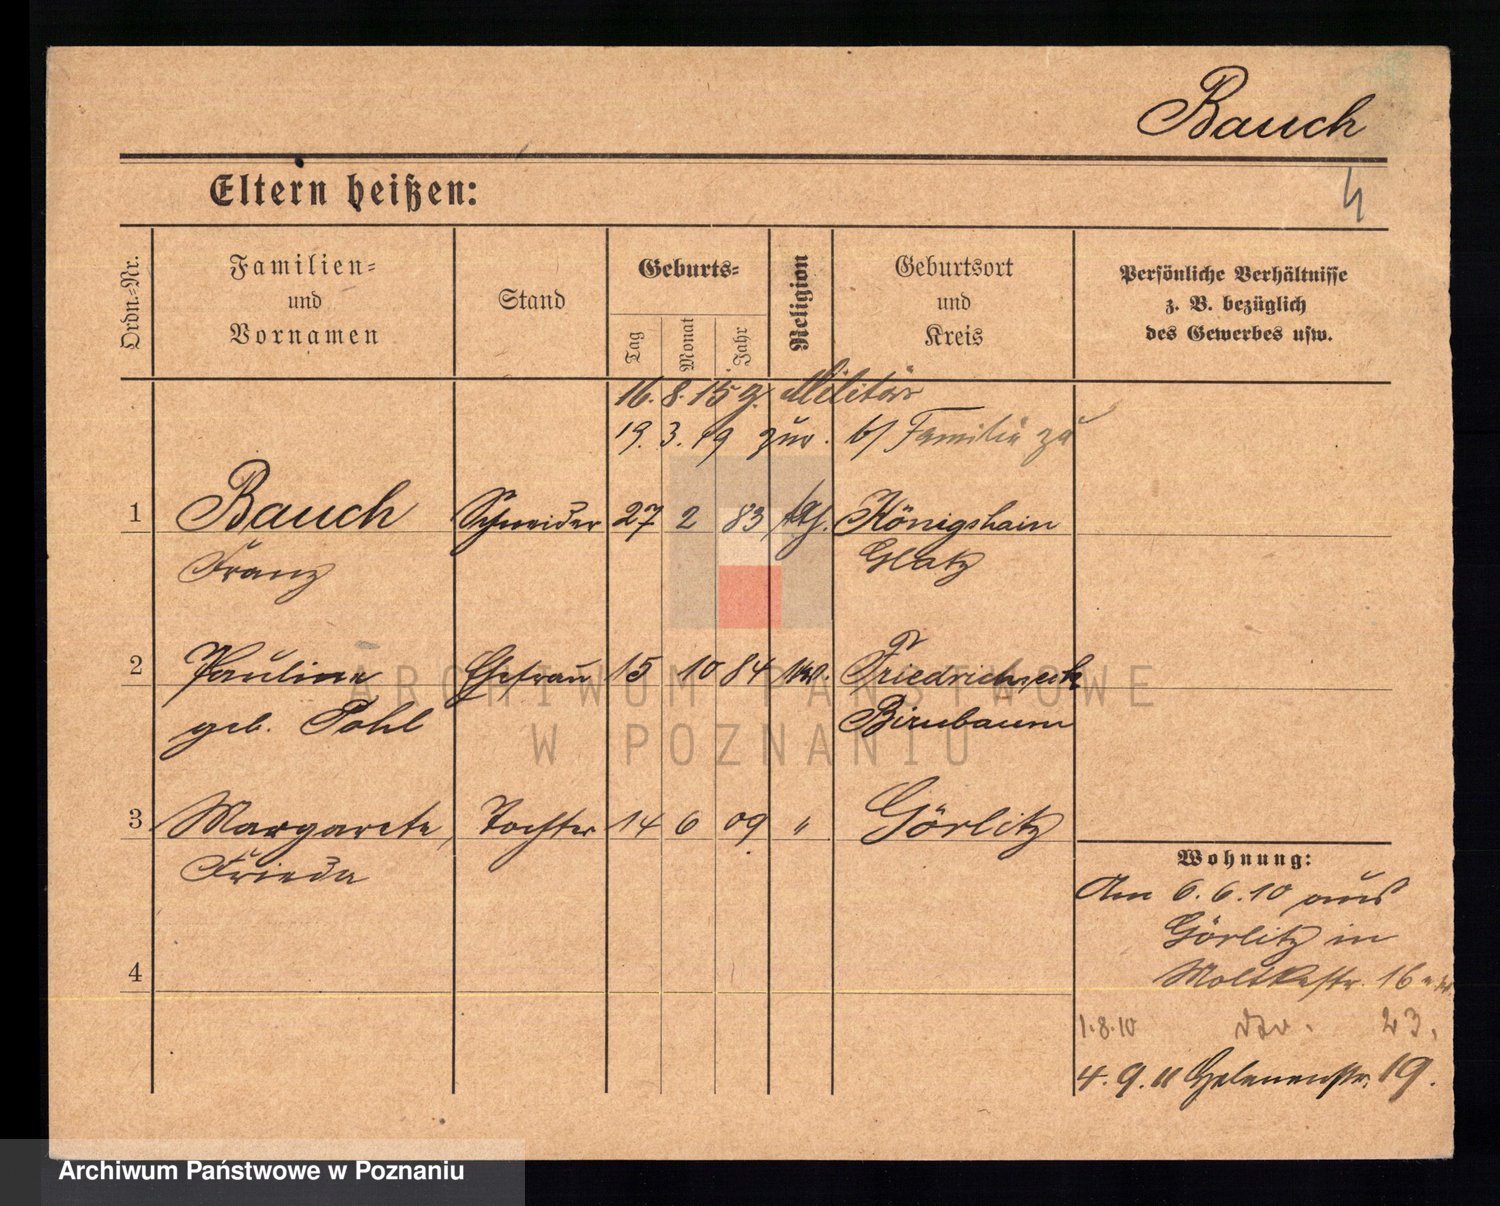 Bauch
Eltern heißen:
4
Ordn.-Nr.
Familien-
und
Vornamen
Stand
Geburts-
Tag
Monat
Jahr
Religion
Geburtsort
und
Kreis
Persönliche Verhältnisse
z. B. bezüglich
des Gewerbes usw.
16. 8. 15 z. Militär
19. 3. 19 zur. b/ Familie zu
1 Bauch Schneider 27 2 83 kth. Königshain
Franz Glatz
2 Pauline Ehefrau 15 10 84 Friedrichs
geb. Pohl Birnbaum
3 Margarete, Tochter 14 6 09 " Görlitz
Frieda
4
Wohnung:
Am 6. 6. 10 aus
Görlitz in
Moltkestr. 16
1. 8. 10 23.
4. 9. 11 Helenenstr. 19.
ARCHIWUM PAŃSTWOWE
W POZNANIU
Archiwum Państwowe w Poznaniu